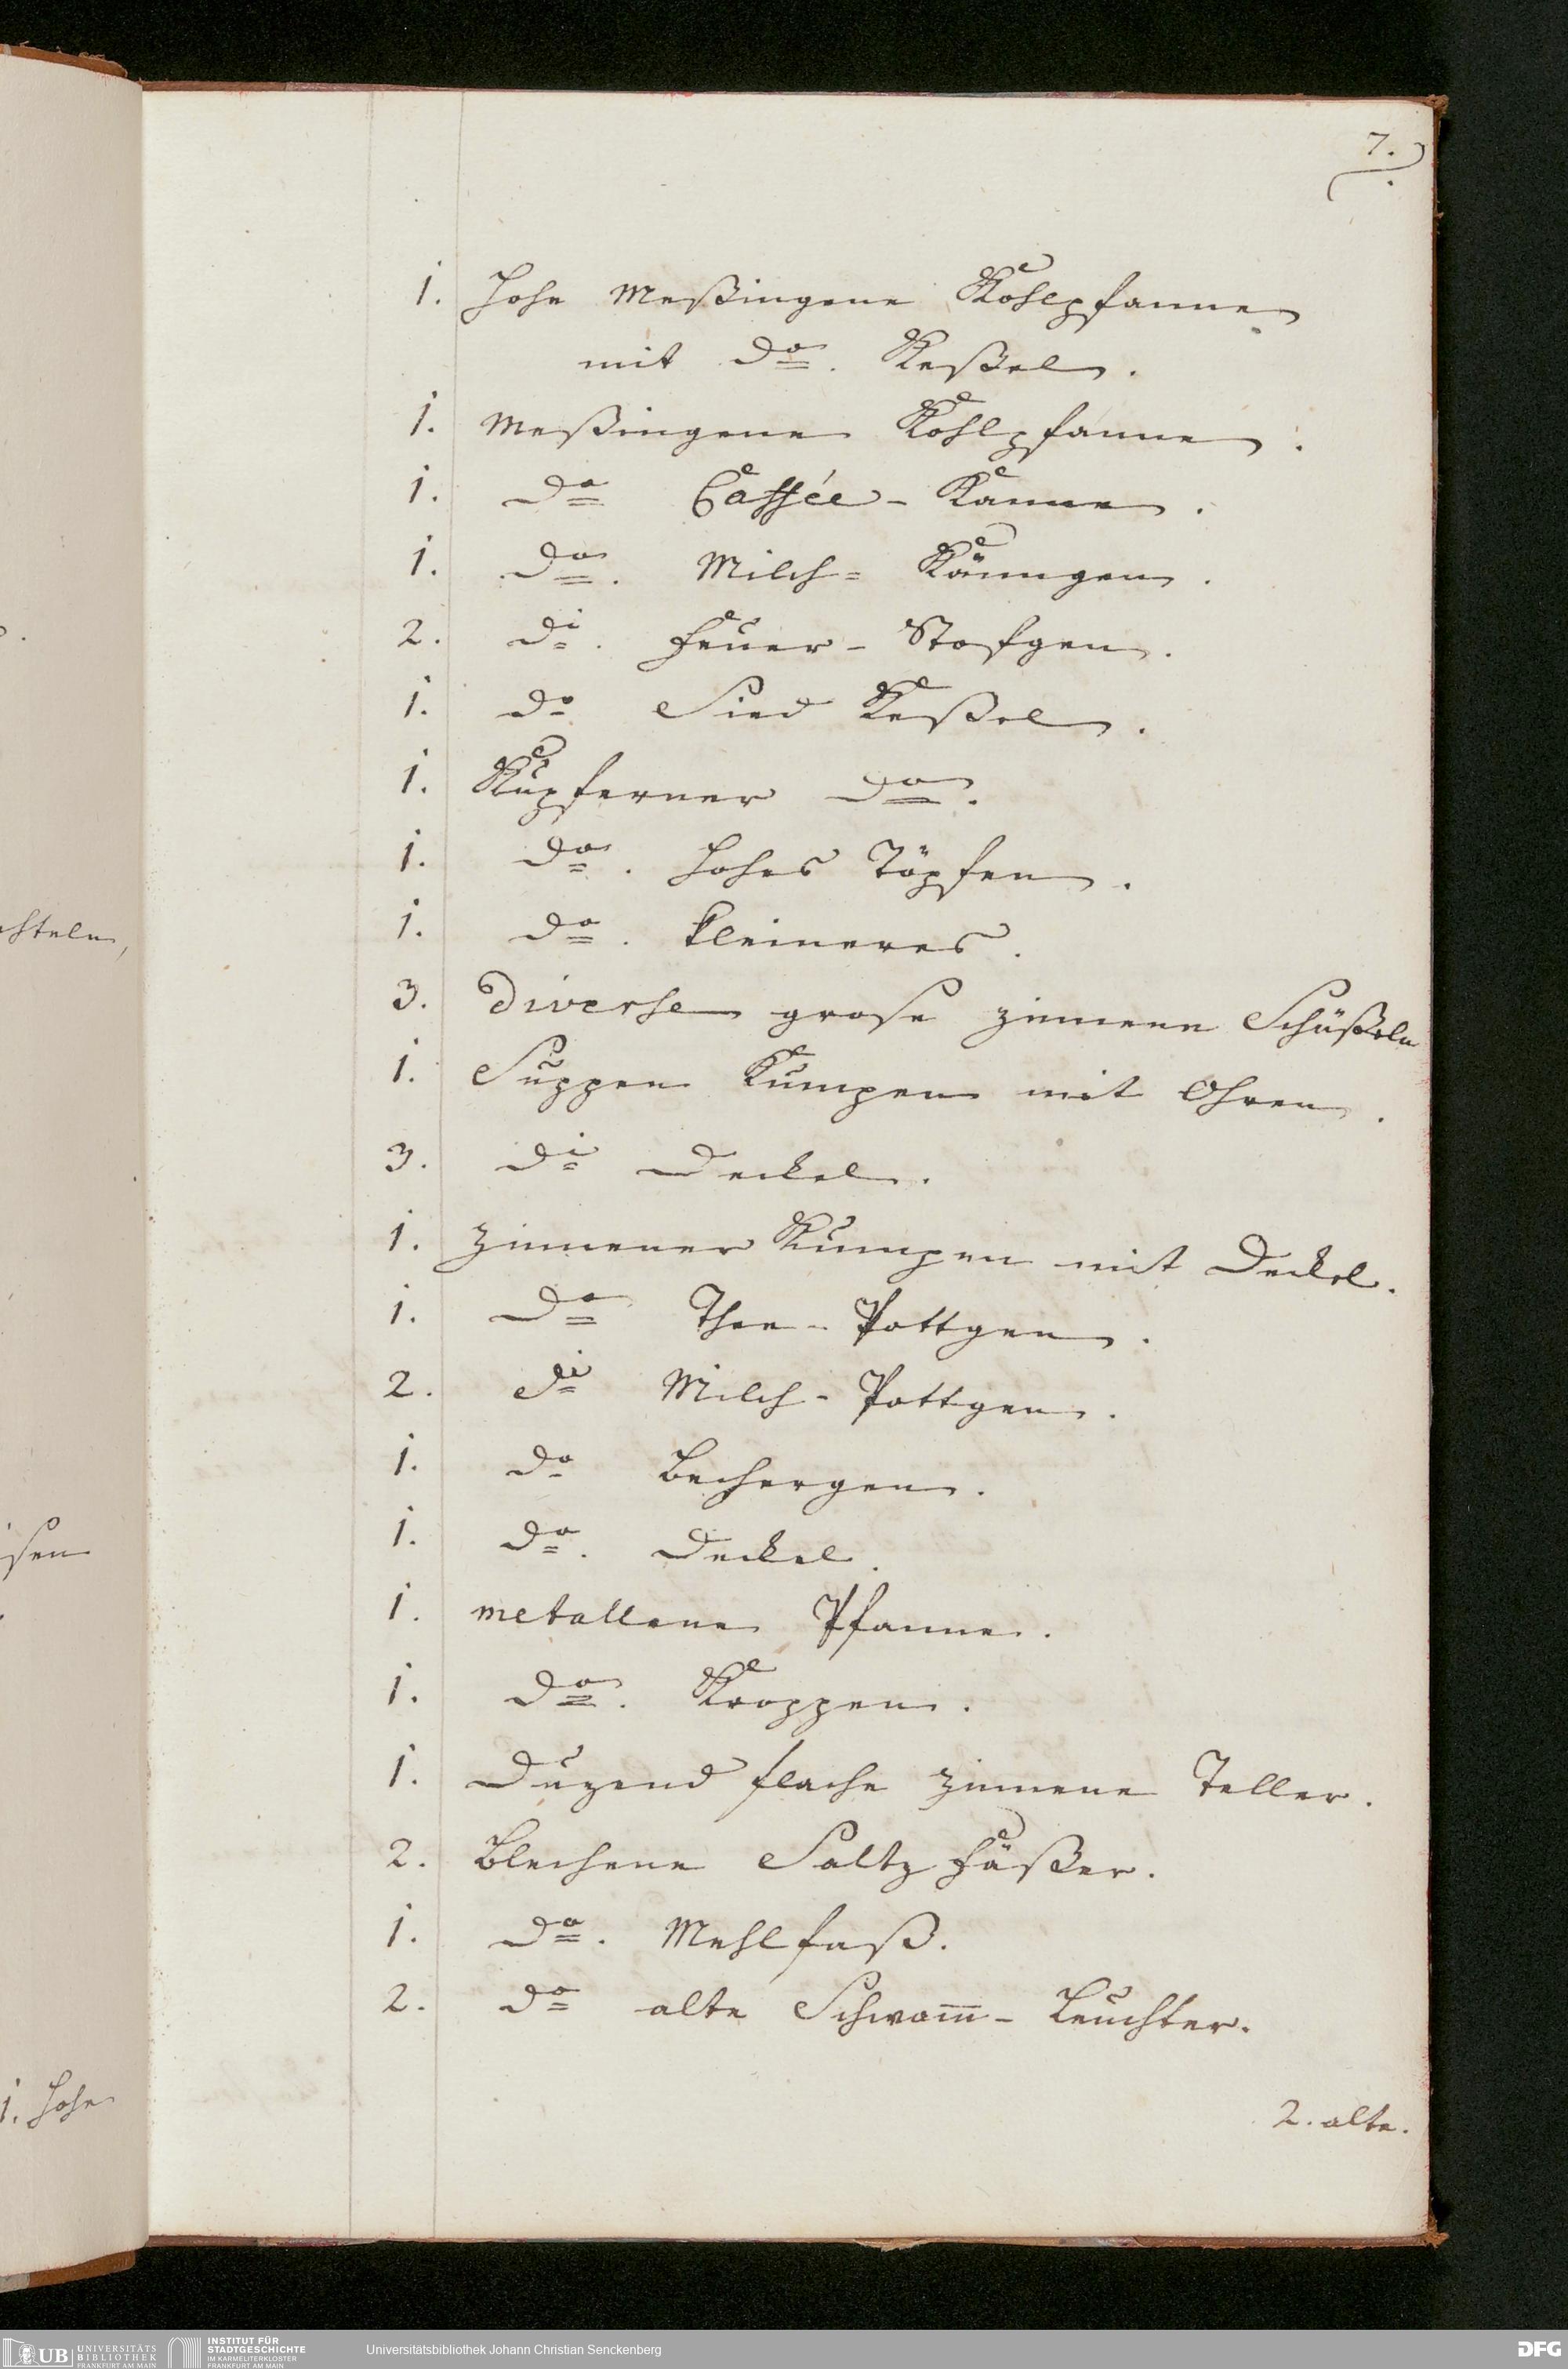 7.
1. Hohe Meßingene Kohlpfanne
mit do. Keßel.
1. Meßingene Kohlpfanne.
1. do Caffée-Kanne.
1. do. Milch=Känngen.
2. di. Feuer-Stofgen.
1. do Sied Keßel.
1. Kupferner do.
1. do. hohes Töpfen.
1. do. kleineres.
3. Diverse grose zinnene Schüßeln
1. Suppen Kumpen mit Ohren.
3. di Deckel.
1. Zinnener Kumpen mit Deckel.
1. do Thee-Pottgen.
2. di Milch-Pottgen.
1. do Bechergen.
1. do. Deckel.
1. metallene Pfanne.
1. do. Kroppen.
1. Duzend flache zinnene Teller.
2. Blechene Saltz Fäßer.
1. do. Mehlfaß.
2. do alte Schwam̅-Leuchter.
2. alte.
1. Hohe
UB UNIVERSITÄTS BIBLIOTHEK FRANKFURT AM MAIN
INSTITUT FÜR STADTGESCHICHTE IM KARMELITERKLOSTER FRANKFURT AM MAIN
Universitätsbibliothek Johann Christian Senckenberg
DFG